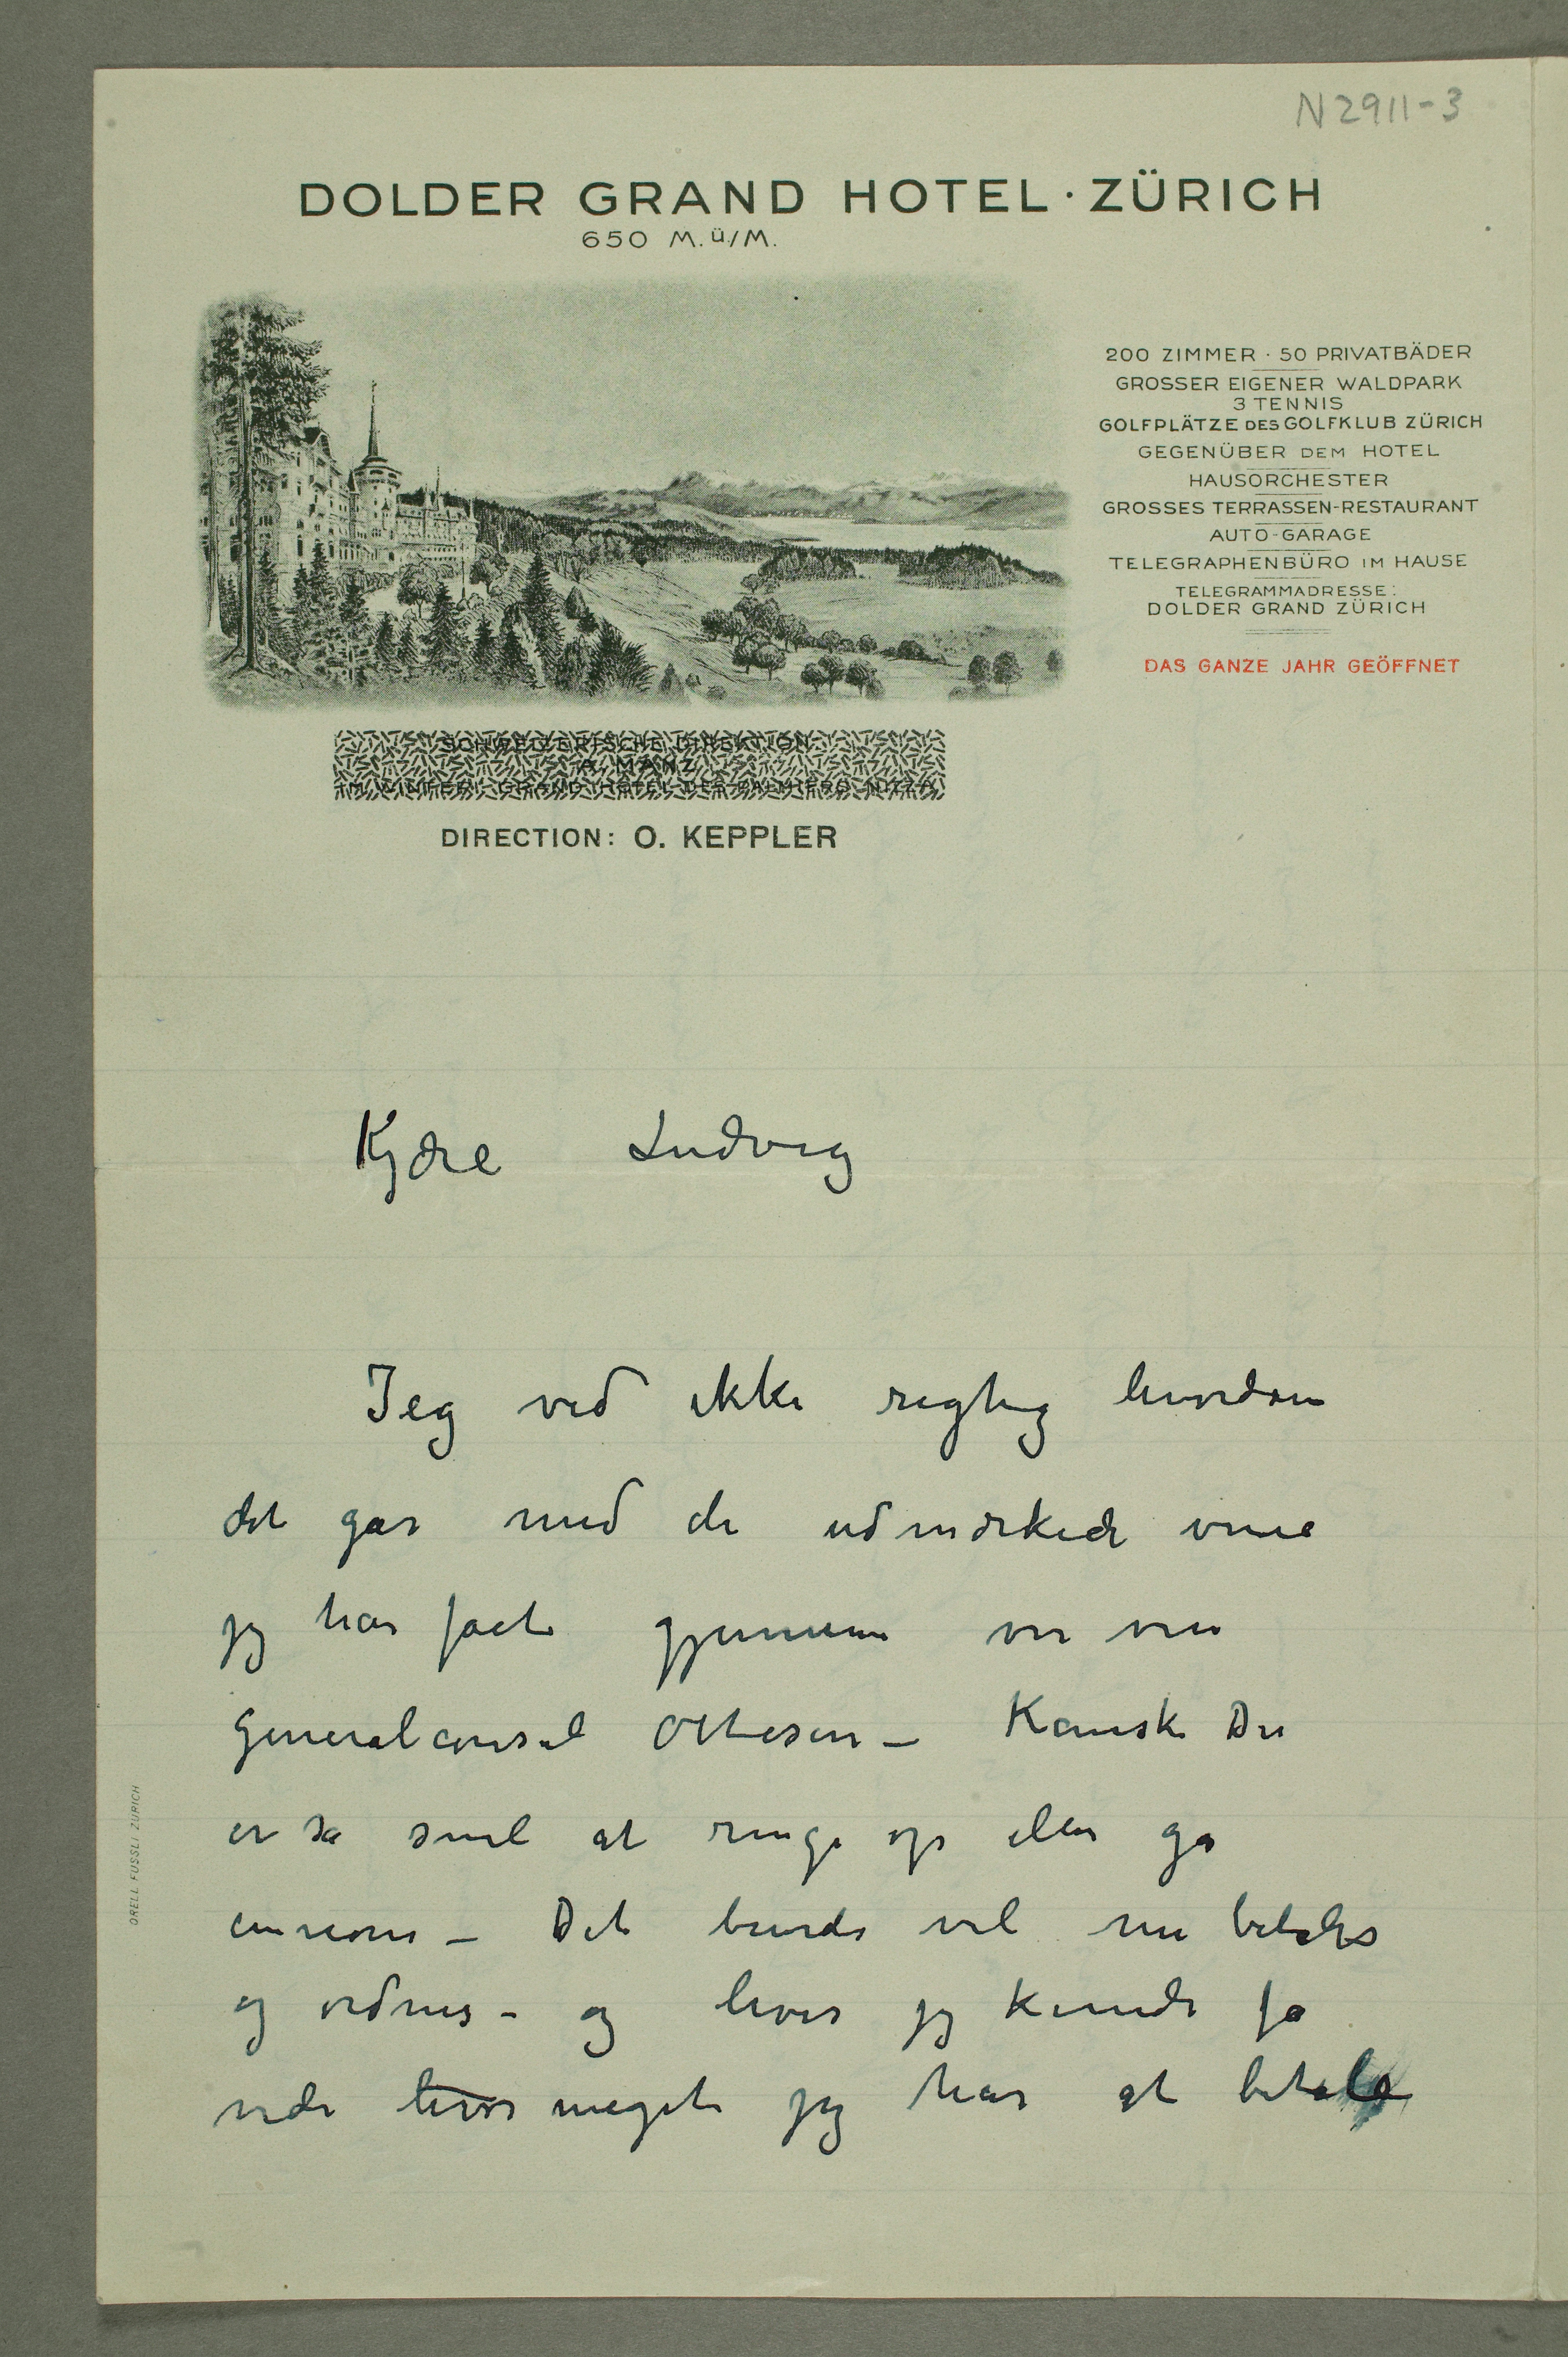 N 2911-3
DOLDER GRAND HOTEL · ZÜRICH
650 M.ü/M.
200 ZIMMER · 50 PRIVATBÄDER
GROSSER EIGENER WALDPARK
3 TENNIS
GOLFPLÄTZE DES GOLFKLUB ZÜRICH
GEGENÜBER DEM HOTEL
HAUSORCHESTER
GROSSES TERRASSEN-RESTAURANT
AUTO-GARAGE
TELEGRAPHENBÜRO IM HAUSE
TELEGRAMMADRESSE:
DOLDER GRAND ZÜRICH
DAS GANZE JAHR GEÖFFNET
SCHWEIZERISCHE DIREKTION
A. MANZ
IM WINTER: GRAND HOTEL DES PALMIERS NIZZA
DIRECTION: O. KEPPLER
Kjære Ludvig
Jeg ved ikke rigtig hvordan
det går med de udmærkede vine
jeg har fået gjennem vor ven
Generalconsul Ottesen – Kanske Du
er så snil at ringe op eller gå
innom – Det burde vel nu betales
og ordnes – og hvis jeg kunde få
vide hvor meget jeg har at betale
ORELL FÜSSLI ZÜRICH